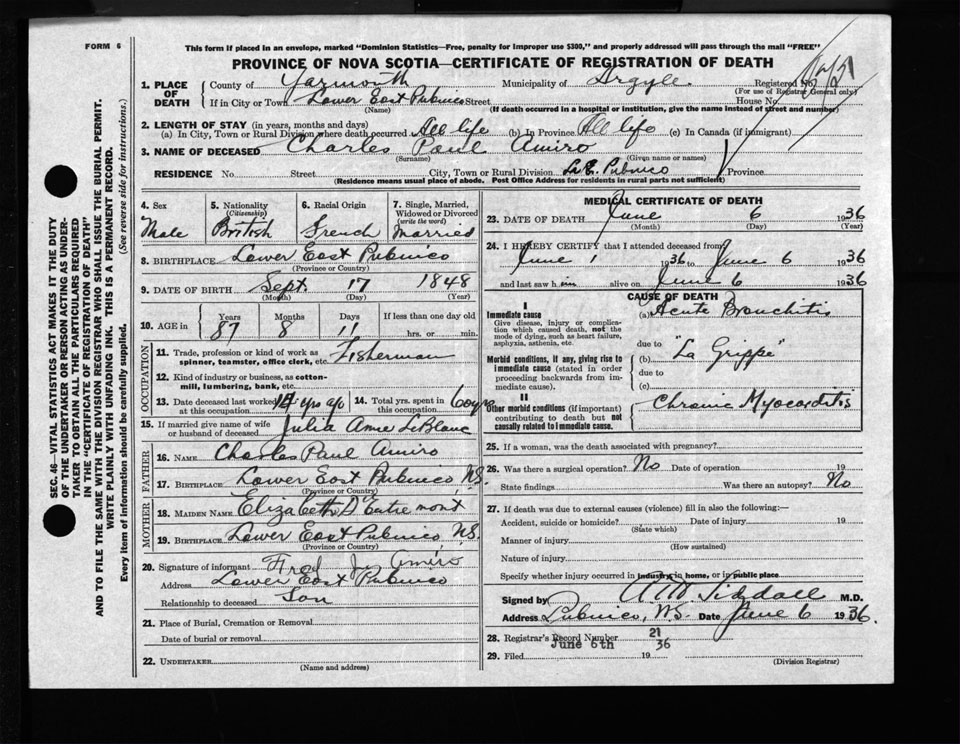 FORM 6
This form if placed in an envelope, marked "Dominion Statistics—Free, penalty for improper use $300," and properly addressed will pass through the mail "FREE"
PROVINCE OF NOVA SCOTIA—CERTIFICATE OF REGISTRATION OF DEATH
1. PLACE OF DEATH
County of Yarmouth Municipality of Argyle Registered No.
(For use of Registrar General only)
If in City or Town Lower East Pubnico Street House No.
(Name) (If death occurred in a hospital or institution, give the name instead of street and number)
2. LENGTH OF STAY (in years, months and days)
(a) In City, Town or Rural Division where death occurred All life (b) In Province All life (c) In Canada (if immigrant)
3. NAME OF DECEASED Charles Paul Amiro
(Surname) (Given name or names)
RESIDENCE No. Street City, Town or Rural Division L. E. Pubnico Province
(Residence means usual place of abode. Post Office Address for residents in rural parts not sufficient)
4. Sex Male
5. Nationality (Citizenship) British
6. Racial Origin French
7. Single, Married, Widowed or Divorced (write the word) Married
8. BIRTHPLACE Lower East Pubnico
(Province or Country)
9. DATE OF BIRTH Sept. 17 1848
(Month) (Day) (Year)
10. AGE in Years 87 Months 8 Days 11 If less than one day old hrs. or min.
OCCUPATION
11. Trade, profession or kind of work as spinner, teamster, office clerk, etc. Fisherman
12. Kind of industry or business, as cotton-mill, lumbering, bank, etc.
13. Date deceased last worked at this occupation 14 yrs ago
14. Total yrs. spent in this occupation 60 yrs
15. If married give name of wife or husband of deceased Julia Anne LeBlanc
FATHER
16. NAME Charles Paul Amiro
17. BIRTHPLACE Lower East Pubnico N.S.
(Province or Country)
MOTHER
18. MAIDEN NAME Elizabeth D'Entremont
19. BIRTHPLACE Lower East Pubnico N.S.
(Province or Country)
20. Signature of informant Fred J. Amiro
Address Lower East Pubnico
Relationship to deceased Son
21. Place of Burial, Cremation or Removal
Date of burial or removal
22. UNDERTAKER
(Name and address)
MEDICAL CERTIFICATE OF DEATH
23. DATE OF DEATH June 6 1936
(Month) (Day) (Year)
24. I HEREBY CERTIFY that I attended deceased from
June 1 1936 to June 6 1936
and last saw him alive on June 6 1936
CAUSE OF DEATH
I
Immediate cause
Give disease, injury or complication which caused death, not the mode of dying, such as heart failure, asphyxia, asthenia, etc.
(a) Acute Bronchitis
due to
Morbid conditions, if any, giving rise to immediate cause (stated in order proceeding backwards from immediate cause).
(b) "La Grippe"
due to
(c)
II
Other morbid conditions (if important) contributing to death but not causally related to immediate cause.
Chronic Myocarditis
25. If a woman, was the death associated with pregnancy?
26. Was there a surgical operation? No Date of operation 19
State findings Was there an autopsy? No
27. If death was due to external causes (violence) fill in also the following:—
Accident, suicide or homicide? Date of injury 19
(State which)
Manner of injury
(How sustained)
Nature of injury
Specify whether injury occurred in industry, in home, or in public place
Signed by A. M. Siddall M.D.
Address Pubnico, N.S. Date June 6 1936.
28. Registrar's Record Number 21
29. Filed June 6th 19 36
(Division Registrar)
SEC. 46—VITAL STATISTICS ACT MAKES IT THE DUTY
OF THE UNDERTAKER OR PERSON ACTING AS UNDER-
TAKER TO OBTAIN ALL THE PARTICULARS REQUIRED
IN THE "CERTIFICATE OF REGISTRATION OF DEATH"
AND TO FILE THE SAME WITH THE DIVISION REGISTRAR WHO SHALL ISSUE THE BURIAL PERMIT.
WRITE PLAINLY WITH UNFADING INK. THIS IS A PERMANENT RECORD.
Every item of information should be carefully supplied. (See reverse side for instructions.)